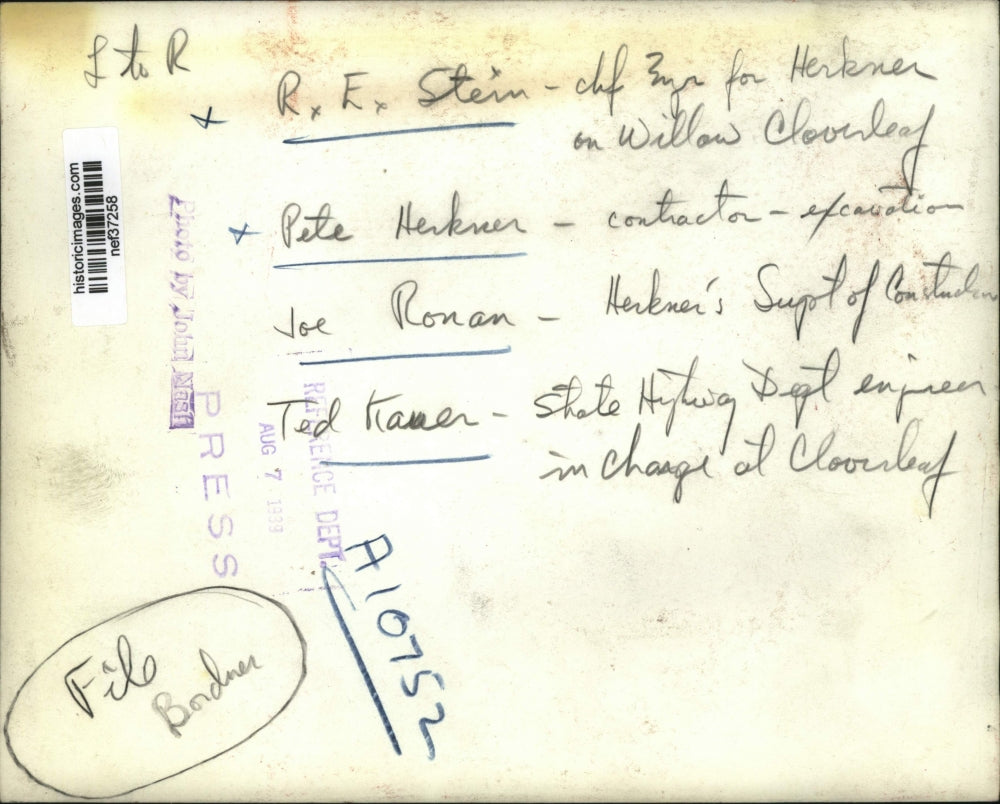 L to R
x R. E. Stein - chf Engr for Herkner
on Willow Cloverleaf
x Pete Herkner - contractor - excavation
Joe Ronan - Herkner's Supt of Construction
Ted Kauer - State Highway Dept engineer
in charge at Cloverleaf
historicimages.com
nef37258
Photo by John Nash
PRESS
REFERENCE DEPT.
AUG 7 1939
A10752
File
Bordner